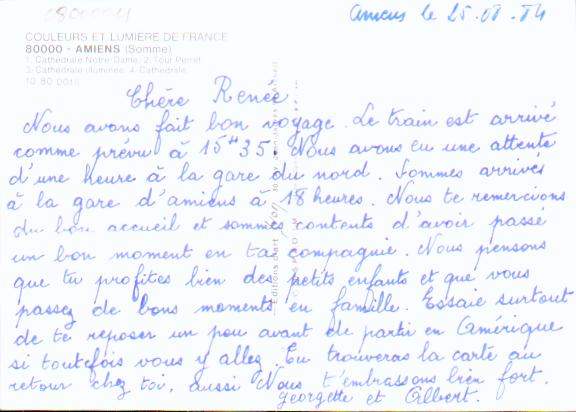 08000014
Amiens le 25.08.84
COULEURS ET LUMIERE DE FRANCE
80000 - AMIENS (Somme)
1. Cathédrale Notre-Dame, 2. Tour Perret
3. Cathédrale illuminée, 4. Cathédrale
10 80 0016
Chère Renée.
Nous avons fait bon voyage. Le train est arrivé
comme prévu à 15H35. Nous avons eu une attente
d'une heure à la gare du nord. Sommes arrivés
à la gare d'amiens à 18 heures. Nous te remercions
du bon accueil et sommes contents d'avoir passé
un bon moment en ta compagnie. Nous pensons
que tu profites bien des petits enfants et que vous
passez de bons moments en famille. Essaie surtout
de te reposer un peu avant de partir en Amérique
si toutefois vous y allez. Tu trouveras la carte au
retour chez toi, aussi Nous t'embrassons bien fort.
Georgette et Albert.
Editions d'art